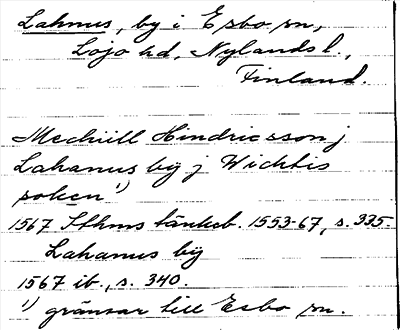 Lahnus, by i Esbo sn,
Lojo hd, Nylands l.,
Finland.
Mechiill Hindricsson j
Lahanus bÿ j Wichtis
soken ¹)
1567 Sthms tänkeb. 1553-67, s. 335.
Lahanus bÿ
1567 ib., s. 340.
¹) gränsar till Esbo sn.